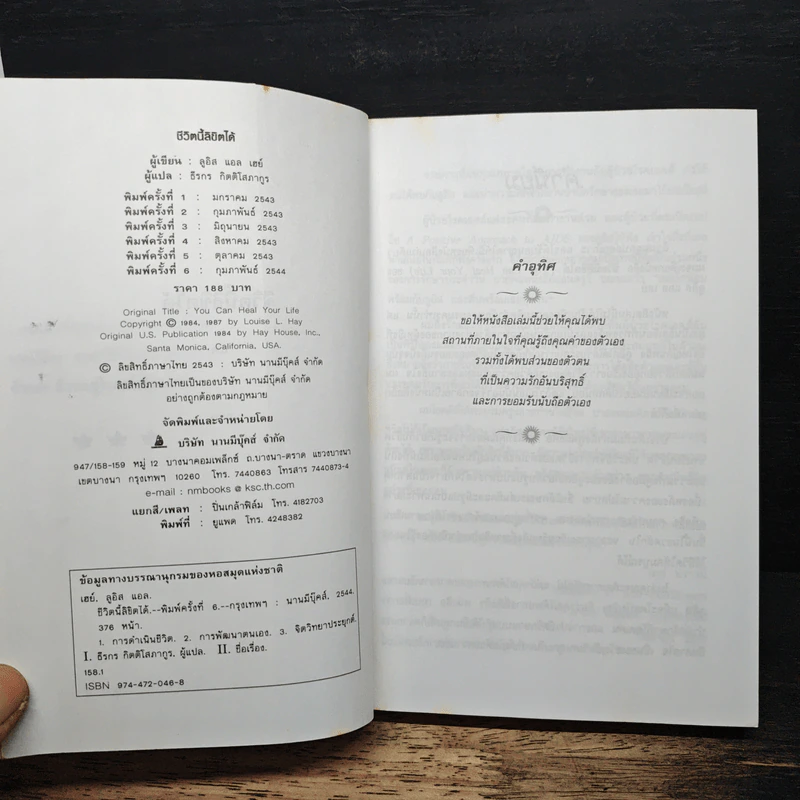 ชีวิตนี้ลิขิตได้
ผู้เขียน : ลูอิส แอล เฮย์
ผู้แปล : ธีรกร กิตติโสภากูร
พิมพ์ครั้งที่ 1 : มกราคม 2543
พิมพ์ครั้งที่ 2 : กุมภาพันธ์ 2543
พิมพ์ครั้งที่ 3 : มิถุนายน 2543
พิมพ์ครั้งที่ 4 : สิงหาคม 2543
พิมพ์ครั้งที่ 5 : ตุลาคม 2543
พิมพ์ครั้งที่ 6 : กุมภาพันธ์ 2544
ราคา 188 บาท
Original Title : You Can Heal Your Life
Copyright © 1984, 1987 by Louise L. Hay
Original U.S. Publication 1984 by Hay House, Inc.,
Santa Monica, California, USA.
© ลิขสิทธิ์ภาษาไทย 2543 : บริษัท นานมีบุ๊คส์ จำกัด
ลิขสิทธิ์ภาษาไทยเป็นของบริษัท นานมีบุ๊คส์ จำกัด
อย่างถูกต้องตามกฎหมาย
จัดพิมพ์และจำหน่ายโดย
บริษัท นานมีบุ๊คส์ จำกัด
947/158-159 หมู่ 12 บางนาคอมเพล็กซ์ ถ.บางนา-ตราด แขวงบางนา
เขตบางนา กรุงเทพฯ 10260 โทร. 7440863 โทรสาร 7440873-4
e-mail : nmbooks @ ksc.th.com
แยกสี/เพลท : ปิ่นเกล้าฟิล์ม โทร. 4182703
พิมพ์ที่ : ยูแพด โทร. 4248382
ข้อมูลทางบรรณานุกรมของหอสมุดแห่งชาติ
เฮย์, ลูอิส แอล.
ชีวิตนี้ลิขิตได้.--พิมพ์ครั้งที่ 6.--กรุงเทพฯ : นานมีบุ๊คส์, 2544.
376 หน้า.
1. การดำเนินชีวิต. 2. การพัฒนาตนเอง. 3. จิตวิทยาประยุกต์.
I. ธีรกร กิตติโสภากูร, ผู้แปล. II. ชื่อเรื่อง.
158.1
ISBN 974-472-046-8
คำอุทิศ
ขอให้หนังสือเล่มนี้ช่วยให้คุณได้พบ
สถานที่ภายในใจที่คุณรู้ถึงคุณค่าของตัวเอง
รวมทั้งได้พบส่วนของตัวตน
ที่เป็นความรักอันบริสุทธิ์
และการยอมรับนับถือตัวเอง